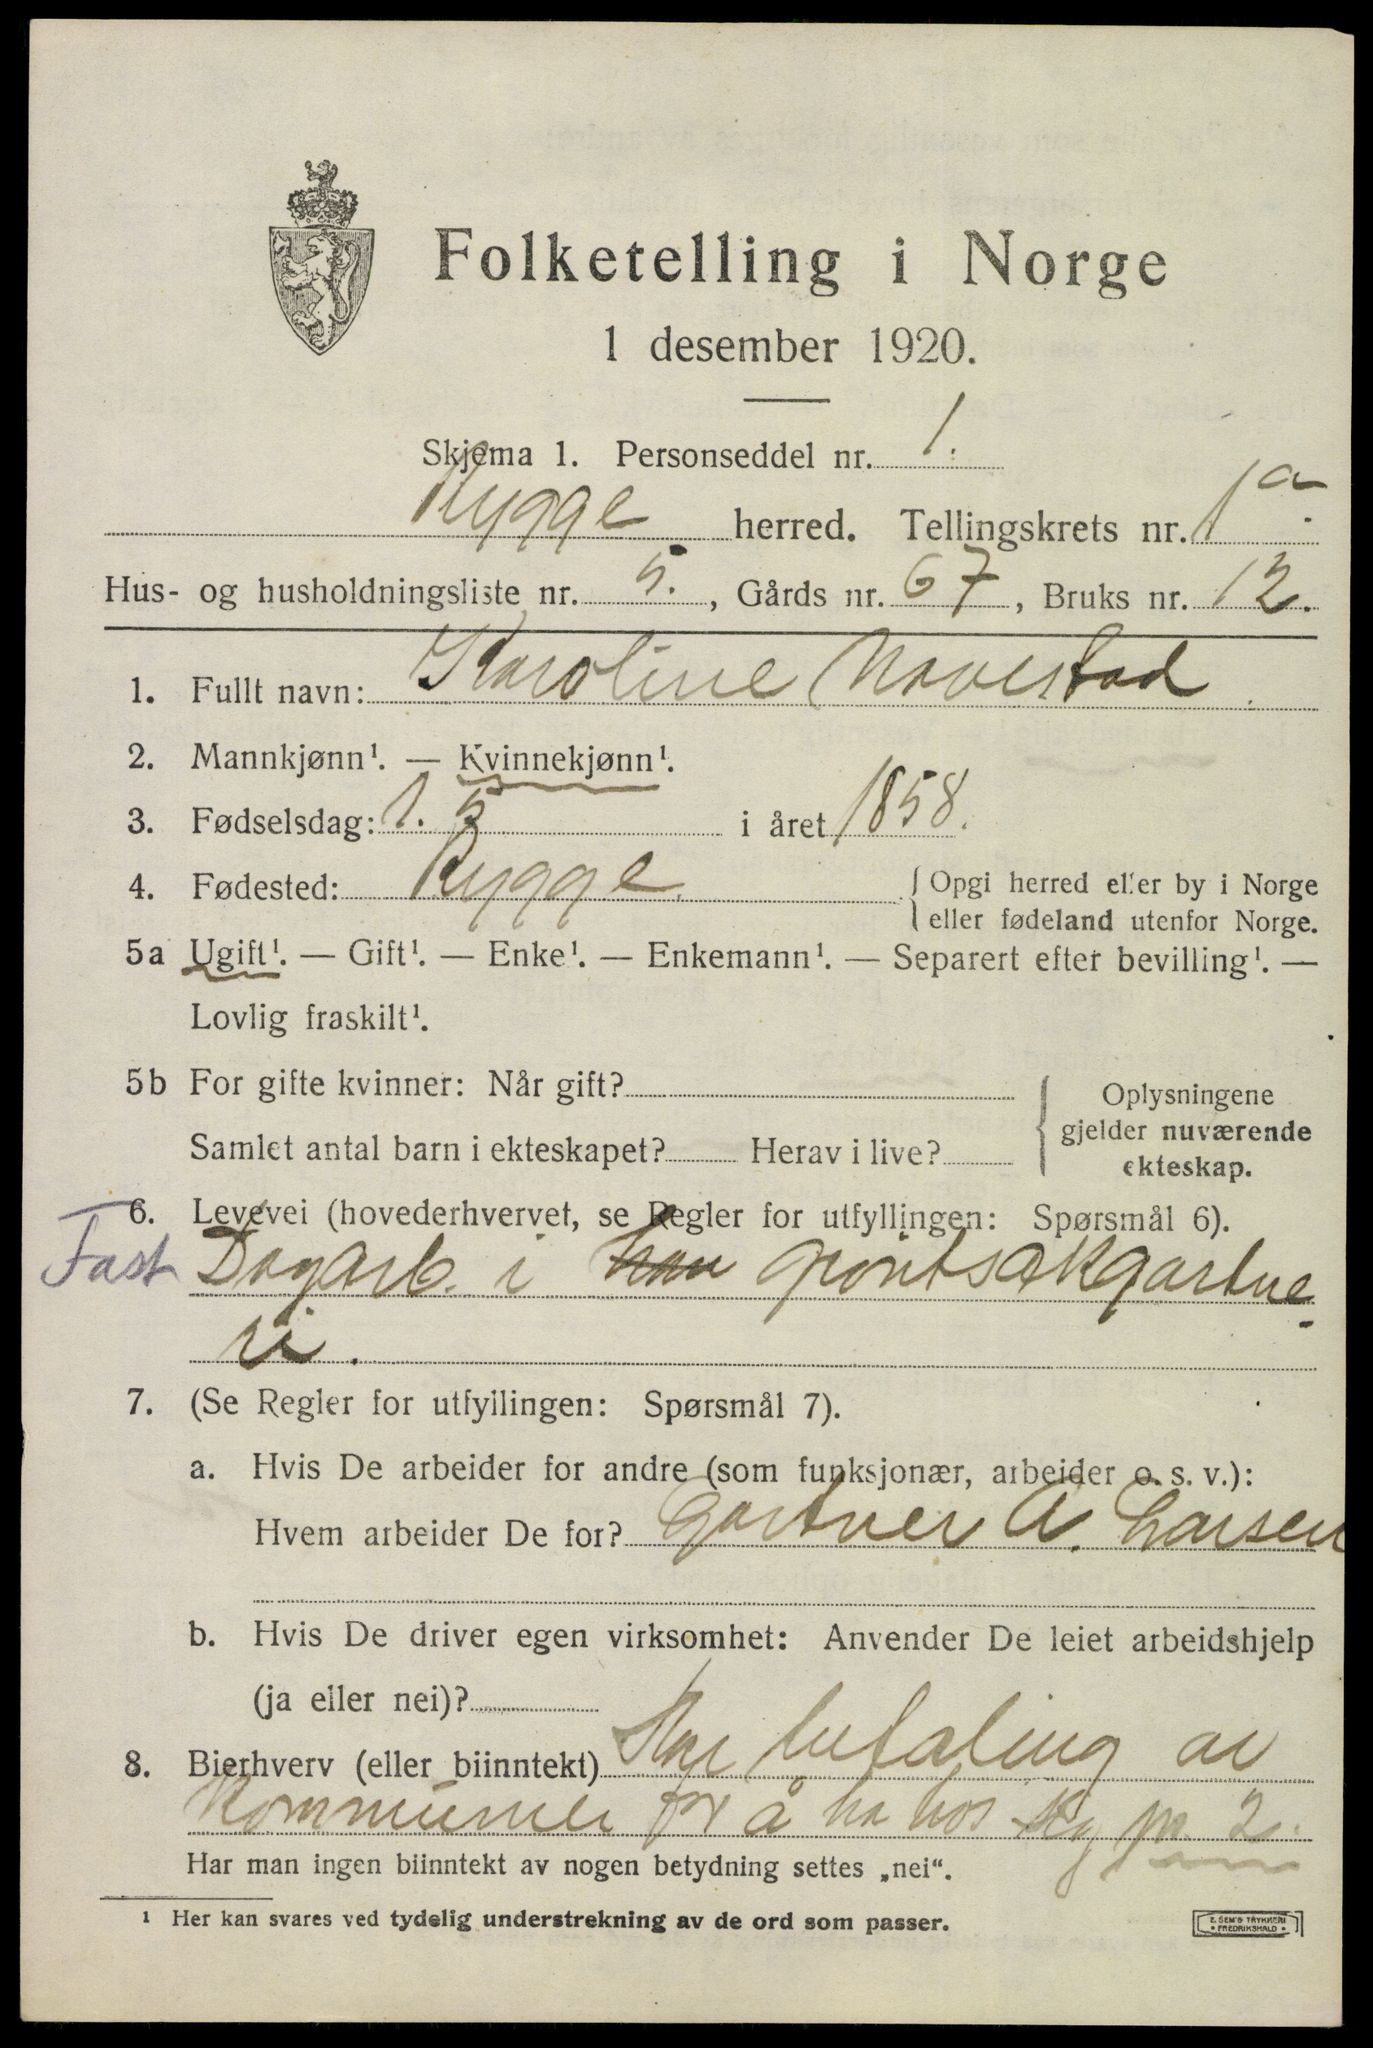 Folketelling i Norge
1 desember 1920.
Skjema 1. Personseddel nr. 1.
Rygge herred. Tellingskrets nr. 1a.
Hus- og husholdningsliste nr. 5., Gårds nr. 67, Bruks nr. 12.
1. Fullt navn: Karoline Navestad.
2. Mannkjønn¹. — Kvinnekjønn¹.
3. Fødselsdag: 1. 5 i året 1858.
4. Fødested: Rygge. { Opgi herred eller by i Norge
eller fødeland utenfor Norge.
5a Ugift¹. — Gift¹. — Enke¹. — Enkemann¹. — Separert efter bevilling¹. —
Lovlig fraskilt¹.
5b For gifte kvinner: Når gift? { Oplysningene
gjelder nuværende
ekteskap.
Samlet antal barn i ekteskapet? Herav i live?
6. Levevei (hovederhvervet, se Regler for utfyllingen: Spørsmål 6).
Fast Dagarb. i grøntsakgartne-
ri.
7. (Se Regler for utfyllingen: Spørsmål 7).
a. Hvis De arbeider for andre (som funksjonær, arbeider o. s. v.):
Hvem arbeider De for? Gartner A. Larsen
b. Hvis De driver egen virksomhet: Anvender De leiet arbeidshjelp
(ja eller nei)?
8. Bierhverv (eller biinntekt) Har betaling av
Kommunen for å ha hos sig nr. 2.
Har man ingen biinntekt av nogen betydning settes „nei“.
¹ Her kan svares ved tydelig understrekning av de ord som passer.
E. SEM'S TRYKKERI
• FREDRIKSHALD •